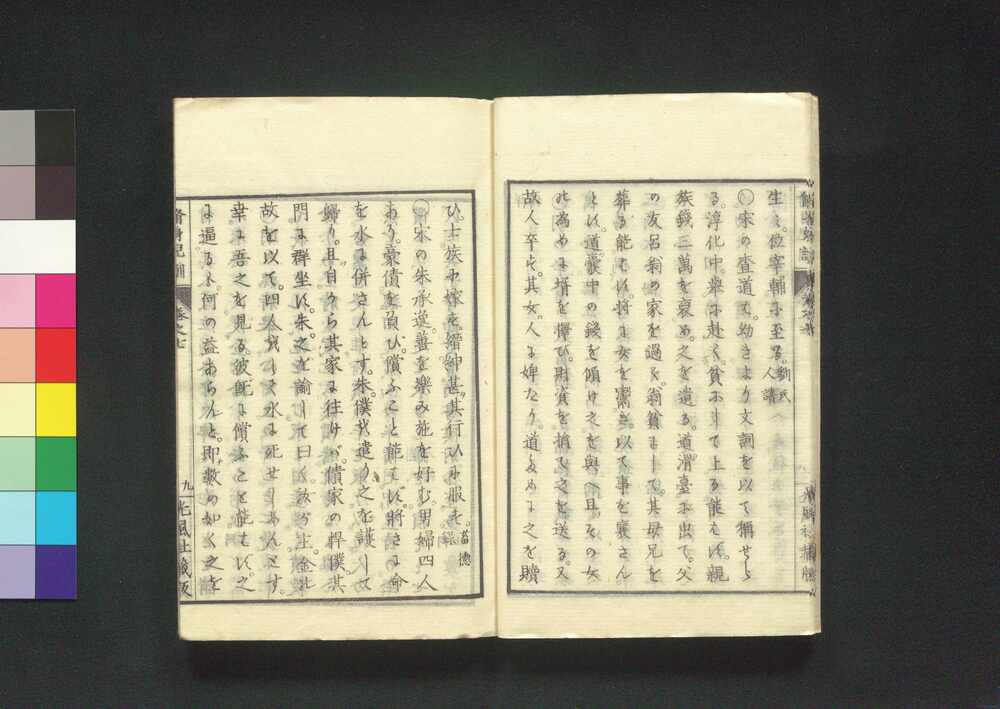 生し位宰輔に至る。劉氏人譜
〇宋の査道は幼きより文詞を以て稱せら
る。淳化中。擧に赴く貧にして上る能はず。親
族錢三萬を裒め。之を遺る。道滑臺に出て。父
の友呂翁の家を過ぐ。翁貧にして。其母兄を
葬る能はず。將に女を鬻ぎ。以て事を襄さん
とす。道。嚢中の錢を傾け之を與へ。且。その女
の為めに壻を擇び。財資を捐て之を送る。又
故人卒す。其女。人に婢たり。道ために之を贖
ひ。士族に嫁す。縉紳甚。其行ひに服す。畜德錄
〇宋の朱承逸。善を樂み施を好む。男婦四人
あり。豪債を負ひ。償ふこと能はず。將さに命
を水に併さんとす。朱。僕を遣り之を護して
婦り。且。自から其家に往けば。債家の悍僕。其
門に群坐す。朱。之を諭して曰く。汝が主。金の
故を以て。四人をして水に死せしめんとす。
幸に吾之を見る。彼既に償ふこと能はず。之
に逼るに。何の益あらんと。即。數の如く之を
脩身児訓
卷之七
九
光風社藏版